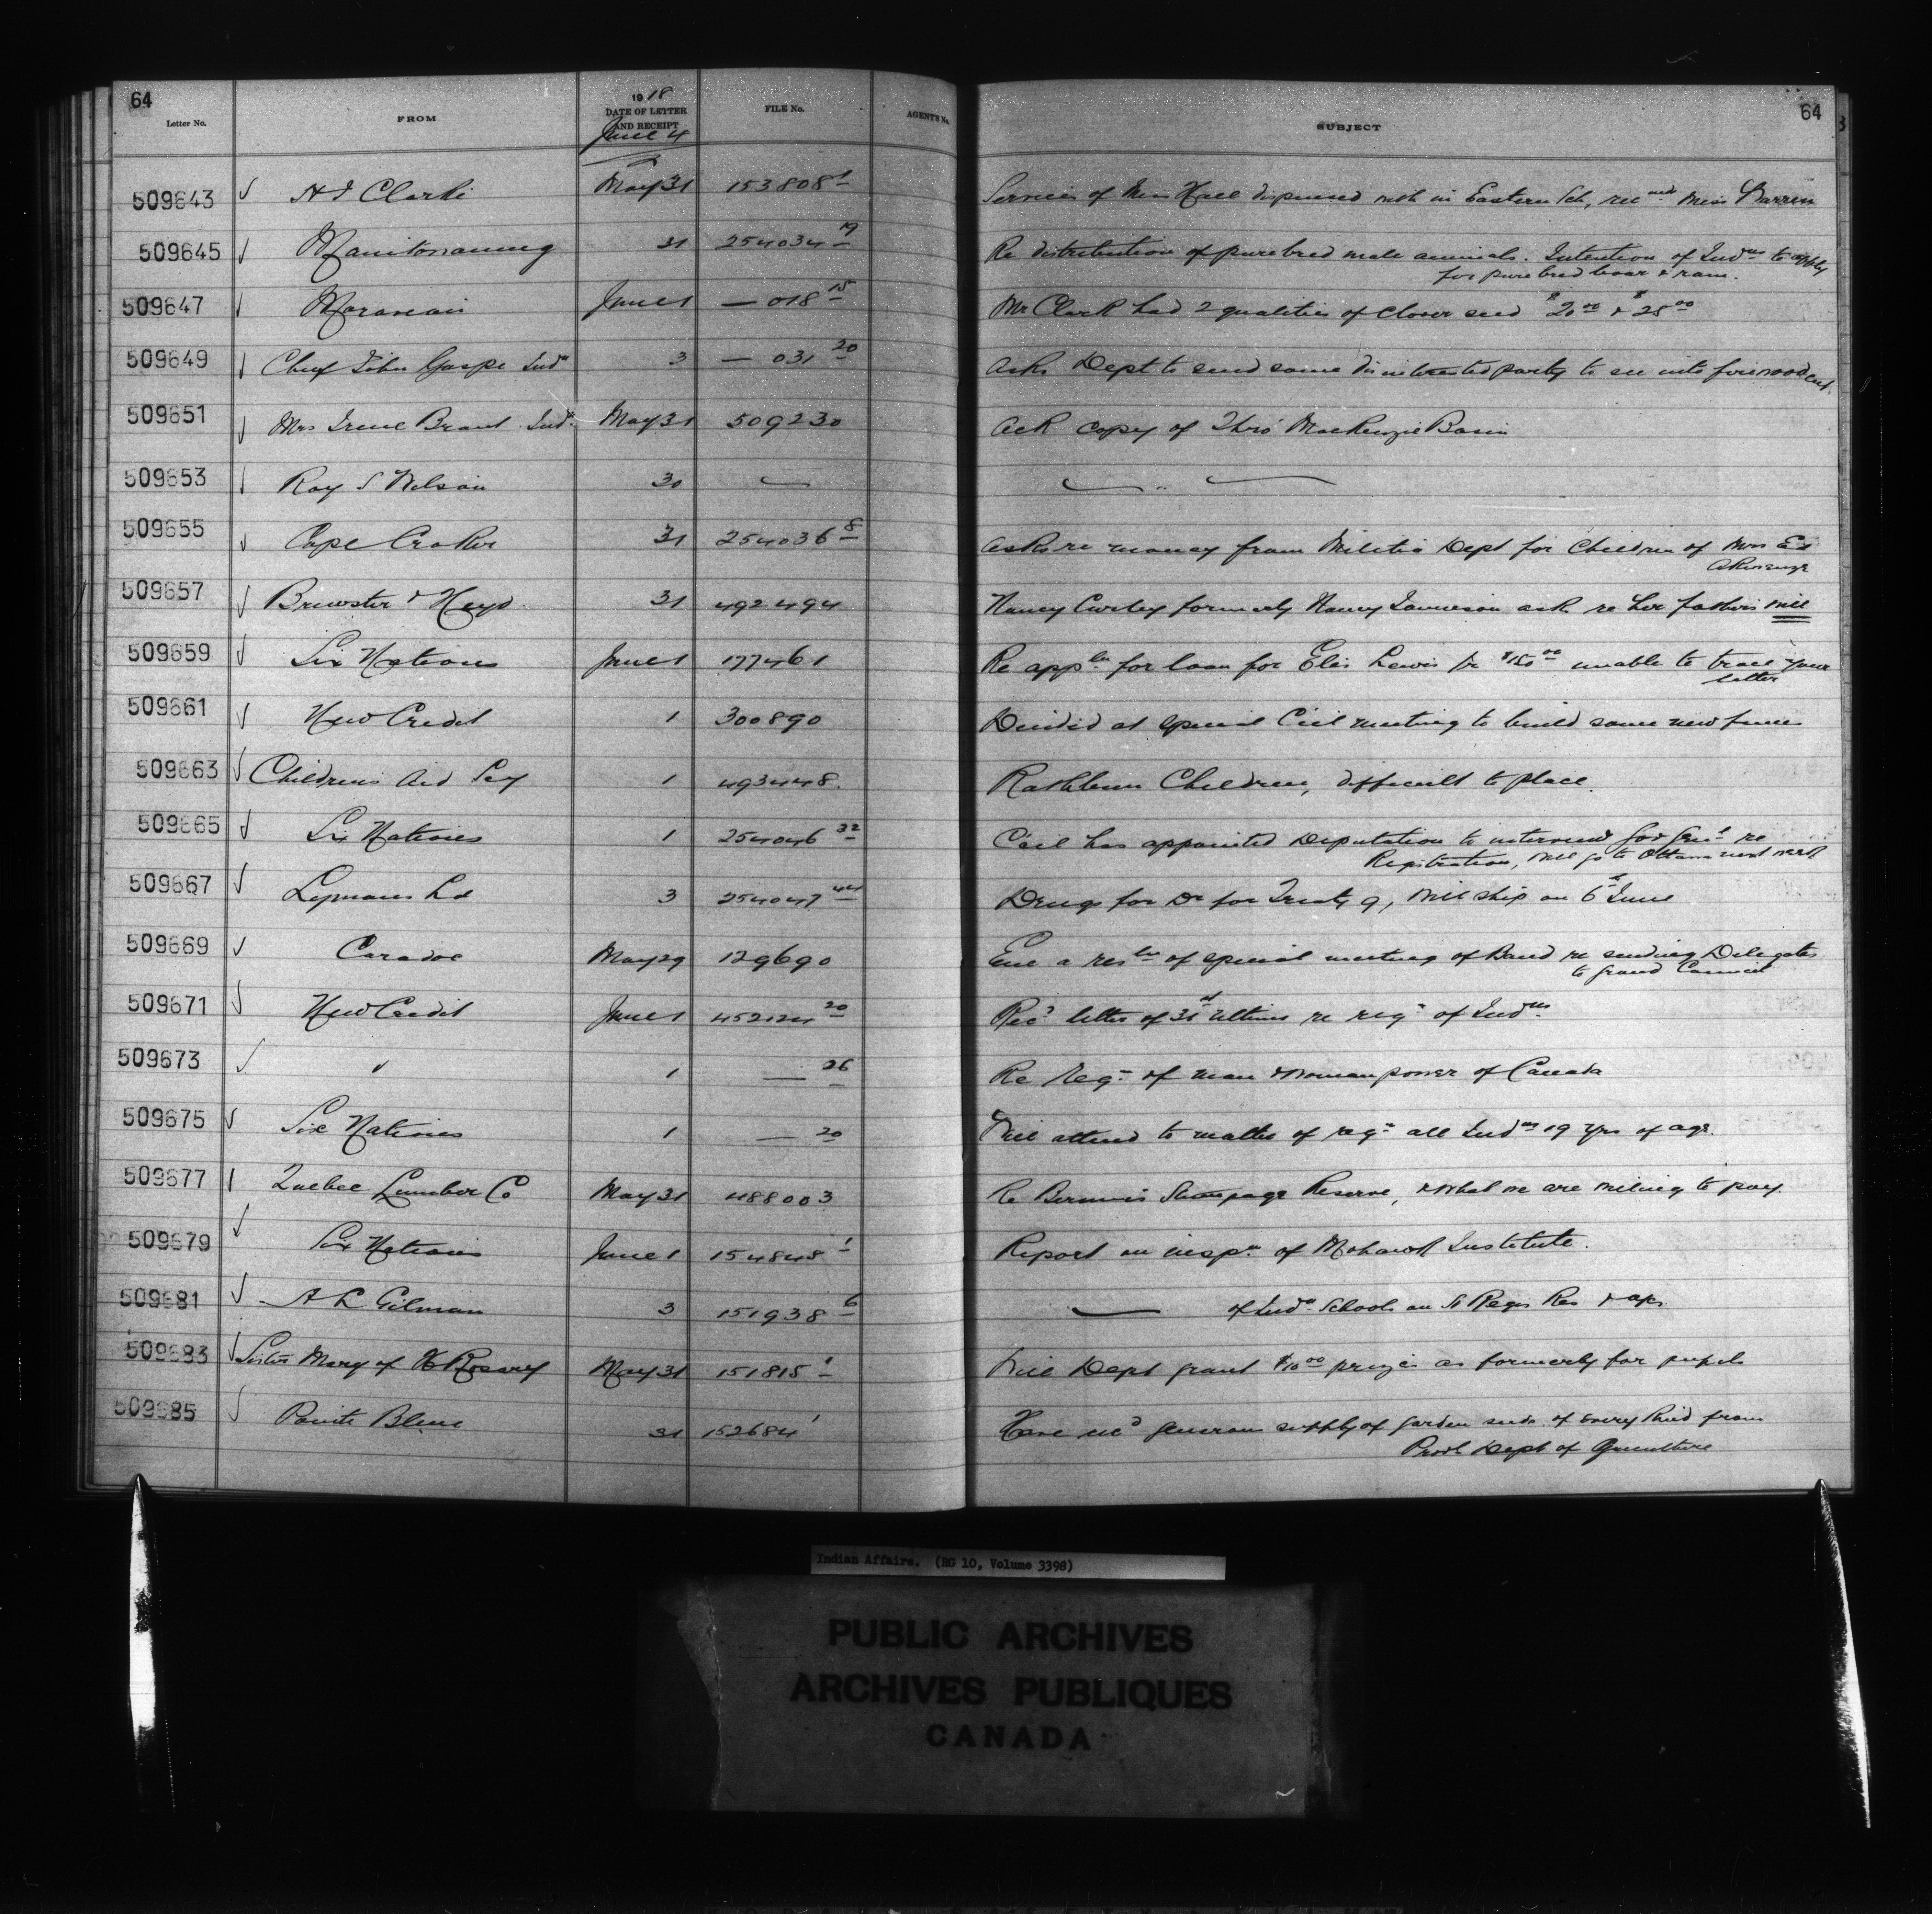 64
Letter No. FROM 1918 DATE OF LETTER AND RECEIPT FILE No. AGENT'S No. SUBJECT 64
June 4
509643 ✓ H J Clarke May 31 153808 1 Services of Miss Hall dispensed with in Eastern Sch, rec mds Miss Barren
509645 ✓ Manitowaning 31 254034 19 Re distribution of purebred male animals. Intention of Indns to apply
for purebred boar & ram.
509647 ✓ Moravian June 1 — 018 15 Mr Clark had 2 qualities of clover seed $20 00 & $25 00
509649 ✓ Chief John Gaspe Indn 3 — 031 20 Asks Dept to send some disinterested party to see into firewood cut.
509651 ✓ Mrs Irene Brant Indn May 31 509230 Ack copy of Thro' MacKenzie Basin
509653 ✓ Roy S Nelson 30 — — " —
509655 ✓ Cape Croker 31 254036 8 Asks re money from Militia Dept for Children of Mrs Ed
Akiwenzie
509657 ✓ Brewster & Heyd 31 492494 Nancy Curley formerly Nancy Jamieson ask re her father's will
509659 ✓ Six Nations June 1 177461 Re appln for loan for Elis Lewis for $150 00 unable to trace your
letter
509661 ✓ New Credit 1 300890 Decided at special Ccil meeting to build some new fences
509663 ✓ Childrens Aid Socy 1 493448. Rathbun Children, difficult to place.
509665 ✓ Six Nations 1 254046 32 Ccil has appointed Deputation to interview Gov Genl re
Registration, will go to Ottawa next week
509667 ✓ Lymans Ld 3 254047 44 Drugs for Dr for Treaty 9, will ship on 6th June
509669 ✓ Caradoc May 29 129690 Enc a resln of special meeting of Band re sending Delegates
to Grand Council
509671 ✓ New Credit June 1 452124 20 Recd letter of 31st ultimo re regn of Indns
509673 ✓ " 1 — 26 Re regn of man & woman power of Canada
509675 ✓ Six Nations 1 — 20 Will attend to matter of regn all Indns 19 yrs of age.
509677 Quebec Lumber Co May 31 488003 Re Bersimis Stumpage Reserve, & what we are willing to pay.
509679 ✓ Six Nations June 1 154848 1 Report on inspn of Mohawk Institute.
509681 ✓ A L Gilman 3 151938 6 — of Indn Schools on St Regis Res & aps
509683 ✓ Sister Mary of H Rosary May 31 151815 1 Will Dept grant $10 00 prizes as formerly for pupils
509685 ✓ Pointe Bleue 31 152684 1 Have recd generous supply of garden seeds of every kind from
Provl Dept of Agriculture
Indian Affairs. (RG 10, Volume 3398)
PUBLIC ARCHIVES
ARCHIVES PUBLIQUES
CANADA